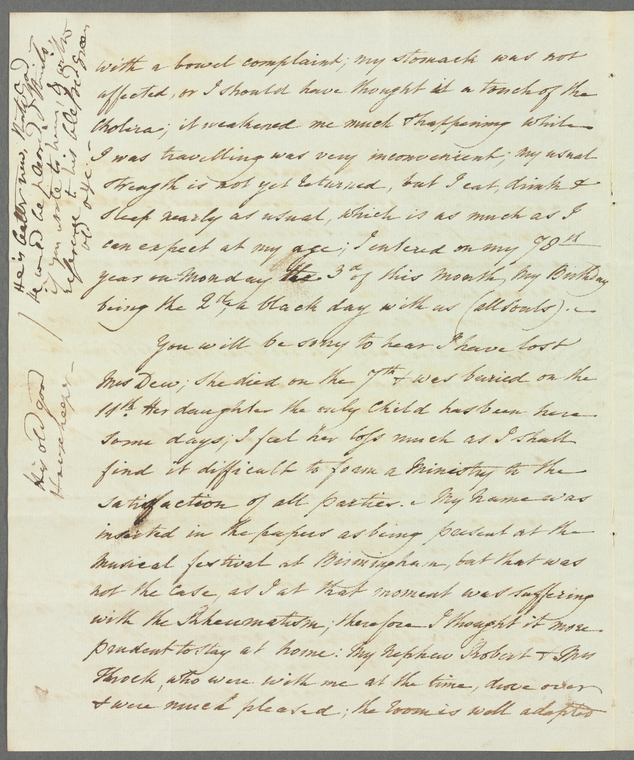 with a bowel complaint; my stomach was not
affected, or I should have thought it a touch of the
Cholera; it weakened me much & happening while
I was travelling was very inconvenient; my usual
strength is not yet returned, but I eat, drink &
sleep nearly as usual, which is as much as I
can expect at my age; I entered on my 78th
year on Monday the 3d of this month, my Birthday
being the 2d, a black day with us (all Souls). -
You will be sorry to hear I have lost
Mrs Dew; she died on the 7th & was buried on the
11th. Her daughter the only Child has been here
some days; I feel her loss much as I shall
find it difficult to form a Ministry to the
satisfaction of all parties. - My Name was
inserted in the papers as being present at the
Musical festival at Birmingham, but that was
not the case, as I at that moment was suffering
with the Rheumatism; therefore I thought it more
prudent to stay at home: My Nephew Robert & Mrs
Throck, who were with me at the time, drove over
& were much pleased; the room is well adapted
He is better now, thank God
he would be pleased I think
if you wrote to him; &
reference to his
old age -
His old good
Housekeeper -